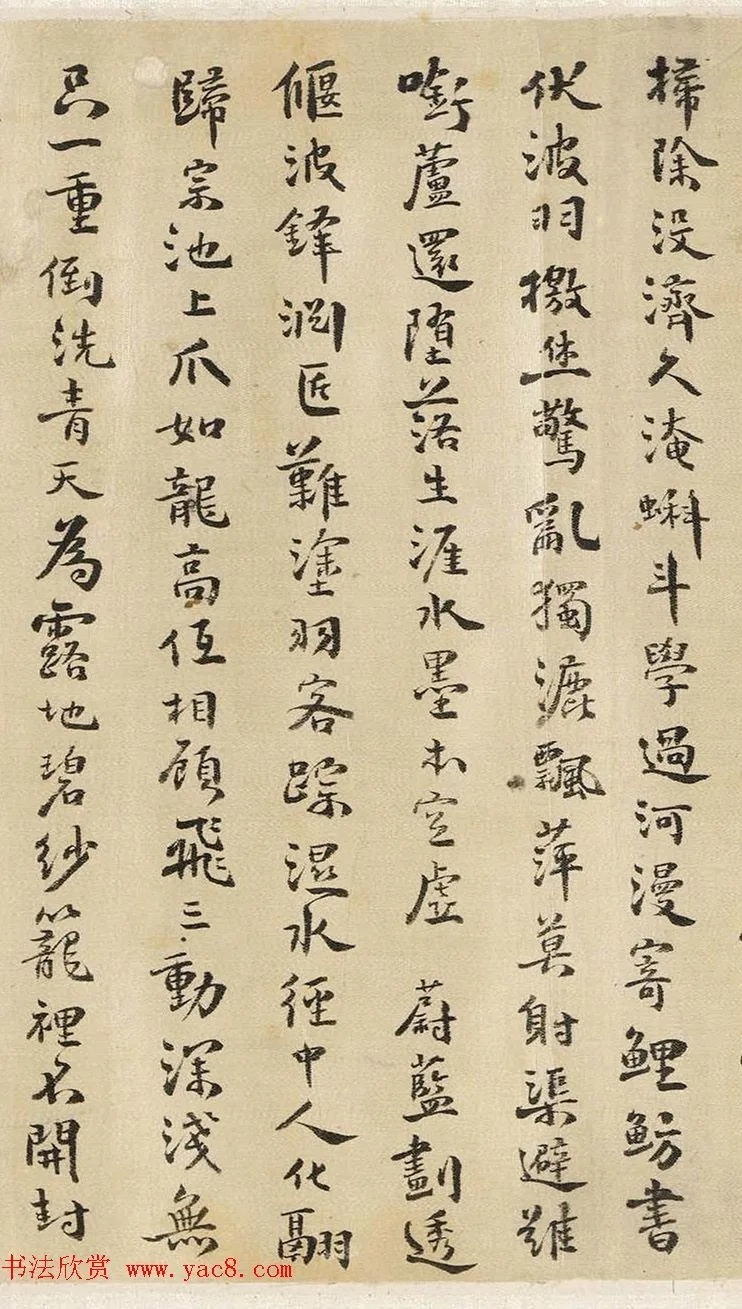 掃除没濟久淹蝌斗學過河漫寄鲤魴書
伏波羽檄悲驚亂獨漉飄萍莫射渠避難
啣蘆還堕落生涯水墨本空虚 蔚藍劃透
偃波鋒澗匝難塗羽客踪濕水徑中人化翮
歸宗池上爪如龍高低相顧飛三動深淺無
只一重倒洗青天為露地碧紗籠裡不開封
书法欣赏 www.yac8.com